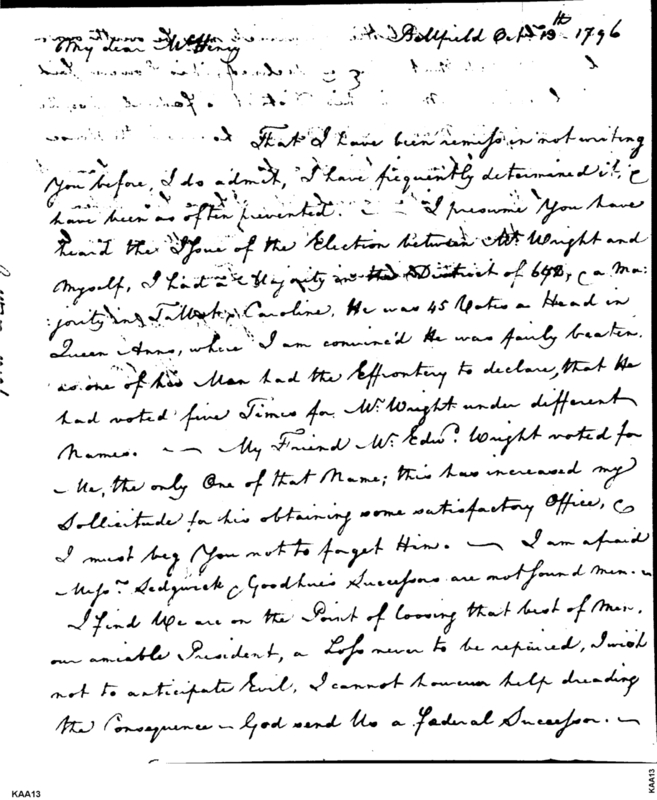 Bellfield Octr. 13th 1796
My dear McHenry
That I have been remiss in not writing
You before, I do admit, I have frequently determined it, &
have been as often prevented. — I presume You have
heard the Issue of the Election between Mr. Wright and
Myself, I had a Majority in the District of &, a Ma:
:jority in Talbot & Caroline, He was 45 Votes a Head in
Queen Anns, where I am convinc'd He was fairly beaten.
as one of his Men had the Effrontery to declare, that He
had voted five Times for Mr. Wright under different
Names. — My Friend Mr. Edwd. Wright voted for
Me, the only One of that Name; this has increased my
Sollicitude for his obtaining some satisfactory Office, &
I must beg You not to forget Him. — I am afraid
Messrs. Sedgwick & Goodhue's Successors are not found men. —
I find We are on the Point of loosing that best of Men,
our amiable President, a Loss never to be repaired, I wish
not to anticipate Evil, I cannot however help dreading
the Consequence — God send Us a Federal Successor. —
KAA13
KAA13